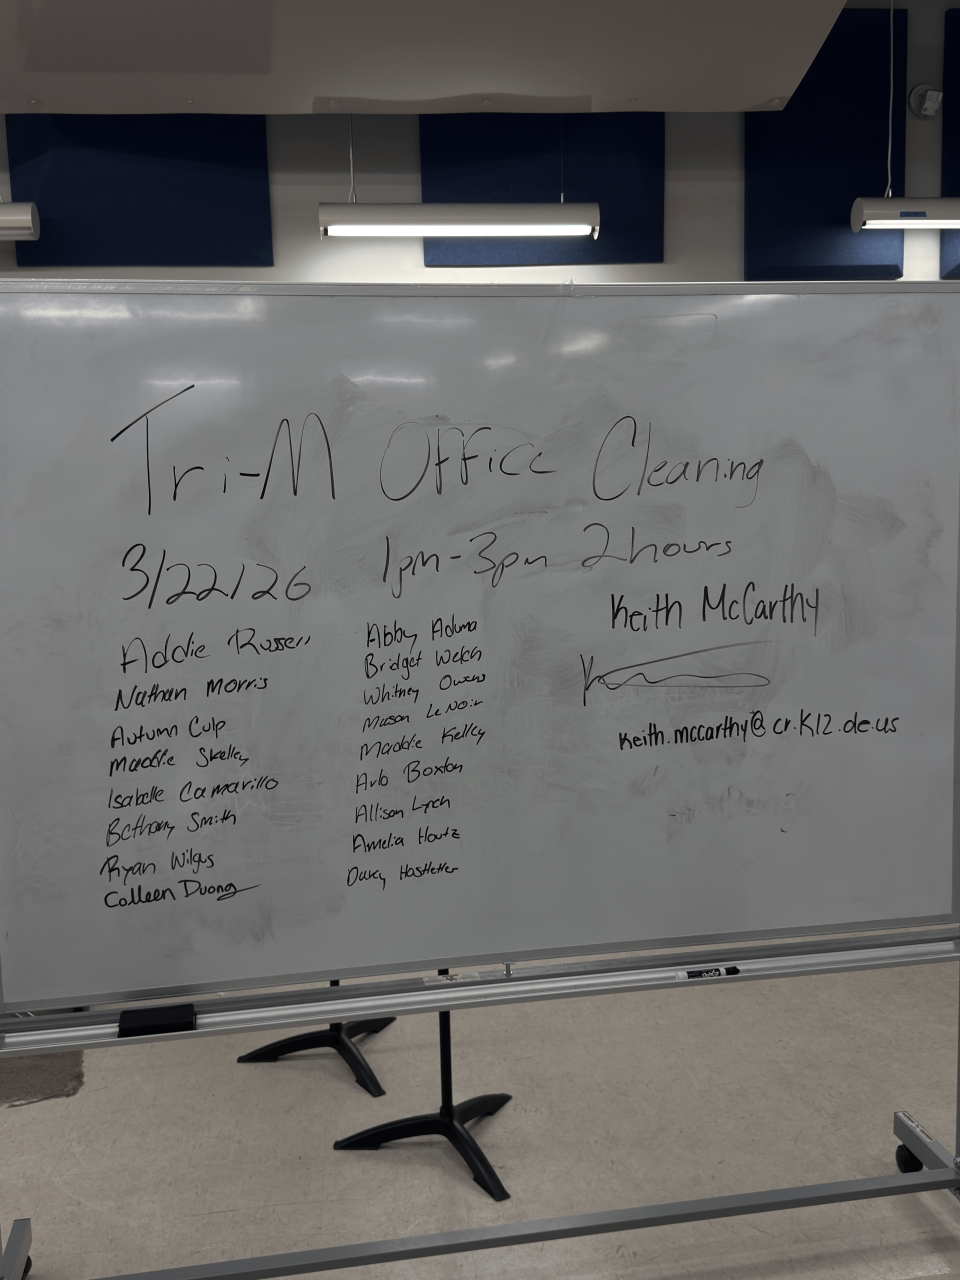 Tri-M Office Cleaning
3/22/26 1pm-3pm 2 hours
Addie Russell
Nathan Morris
Autumn Culp
Maddie Skelley
Isabelle Camarillo
Bethany Smith
Ryan Wilgus
Colleen Duong
Abby Aduma
Bridget Welch
Whitney Owens
Mason LeNoir
Maddie Kelley
Boxton
Allison Lynch
Amelia Houtz
Darcy Hostletter
Keith McCarthy
keith.mccarthy@cr.k12.de.us